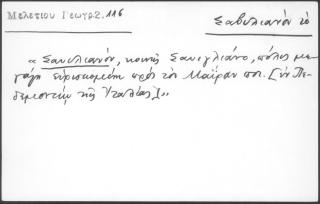 Μελετίου Γεωγρ. 2. 116
Σαβιλιανὸν τὸ
« Σαυιλιανόν, κοινῶς Σαυιγλιάνο, πόλις με-
γάλη εὑρισκομένη πρὸς τὸν Μαΐραν ποτ. [ἐν Πε-
δεμοντίῳ τῆς Ἰταλίας]»